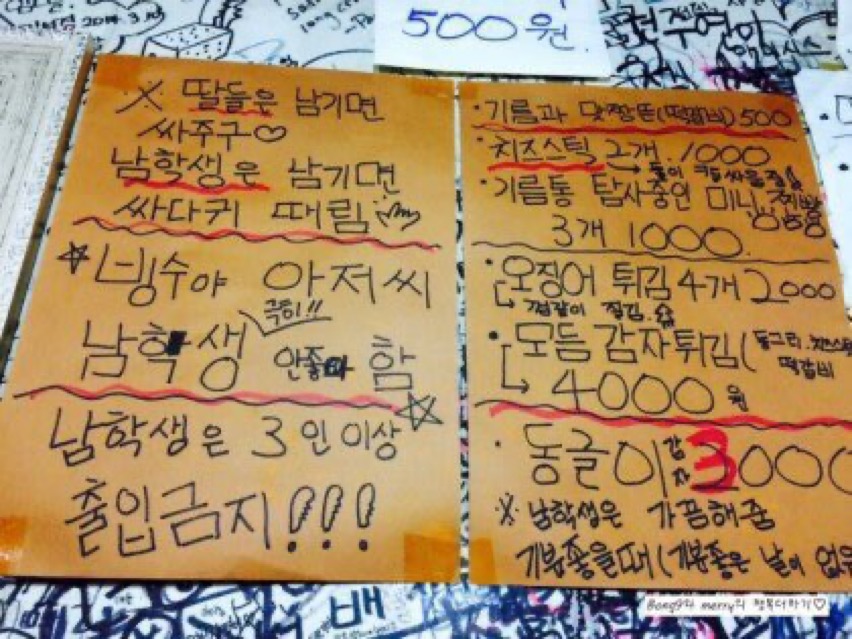 500원.
※ 딸들은 남기면
싸주구♡
남학생은 남기면
싸다귀 때림
☆ 빙수야 아저씨
극히!!
남학생 안좋아함
남학생은 3인이상
출입금지!!!
·기름과 맛짱뜬(떡갈비)500
·치즈스틱 2개.1000
·기름통 탐사중인 미니
3개 1000.
·오징어 튀김 4개 2000
↳ 껌같이 질김.
·모듬감자튀김(동그리.치즈스틱
떡갈비
↳ 4000원
·동글이감자3000
※ 남학생은 가끔해줌
기분좋을때(기분좋은 날이 없음
Bong94 merry의 행복더하기♡
배